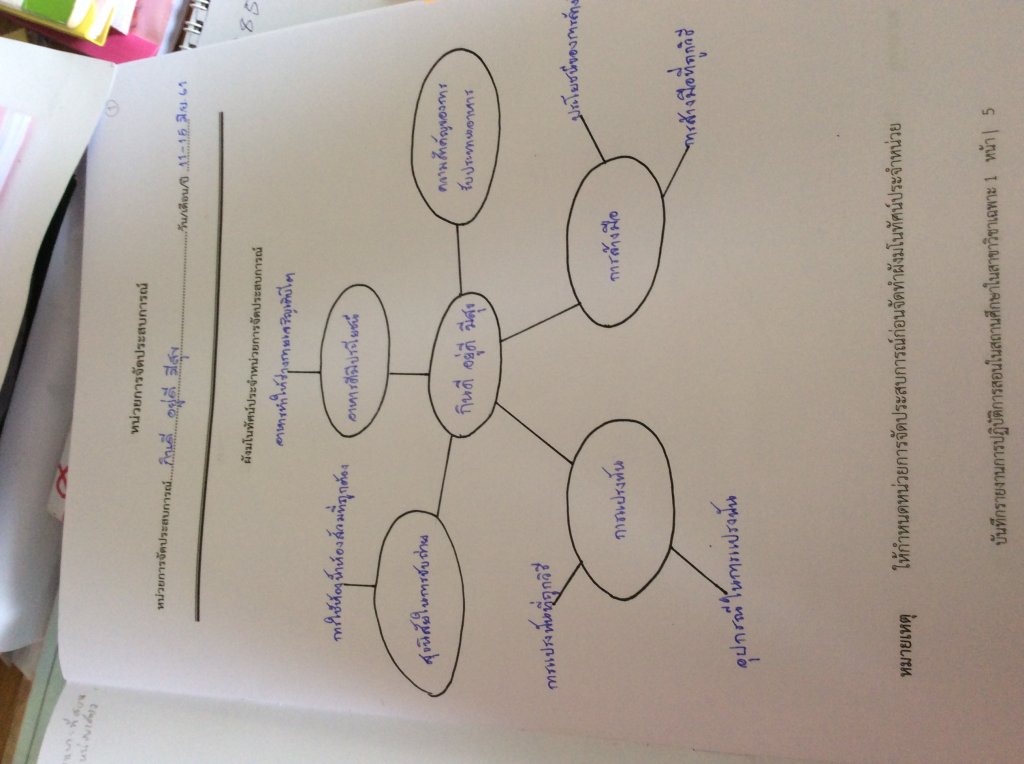 ①
หน่วยการจัดประสบการณ์
หน่วยการจัดประสบการณ์....กินดี อยู่ดี มีสุข....วัน/เดือน/ปี 11-15 มิ.ย. 61
ผังมโนทัศน์ประจำหน่วยการจัดประสบการณ์
อาหารทำให้ร่างกายเจริญเติบโต
อาหารดีมีประโยชน์
ความสำคัญของการ
รับประทานอาหาร
การใช้ห้องน้ำห้องส้วมที่ถูกต้อง
สุขนิสัยในการขับถ่าย
กินดี อยู่ดี มีสุข
การแปรงฟันที่ถูกวิธี
การแปรงฟัน
อุปกรณ์ในการแปรงฟัน
การล้างมือ
ประโยชน์ของการล้าง
การล้างมือที่ถูกวิธี
หมายเหตุ ให้กำหนดหน่วยการจัดประสบการณ์ก่อนจัดทำผังมโนทัศน์ประจำหน่วย
บันทึกรายงานการปฏิบัติการสอนในสถานศึกษาในสาขาวิชาเฉพาะ 1 หน้า | 5
85